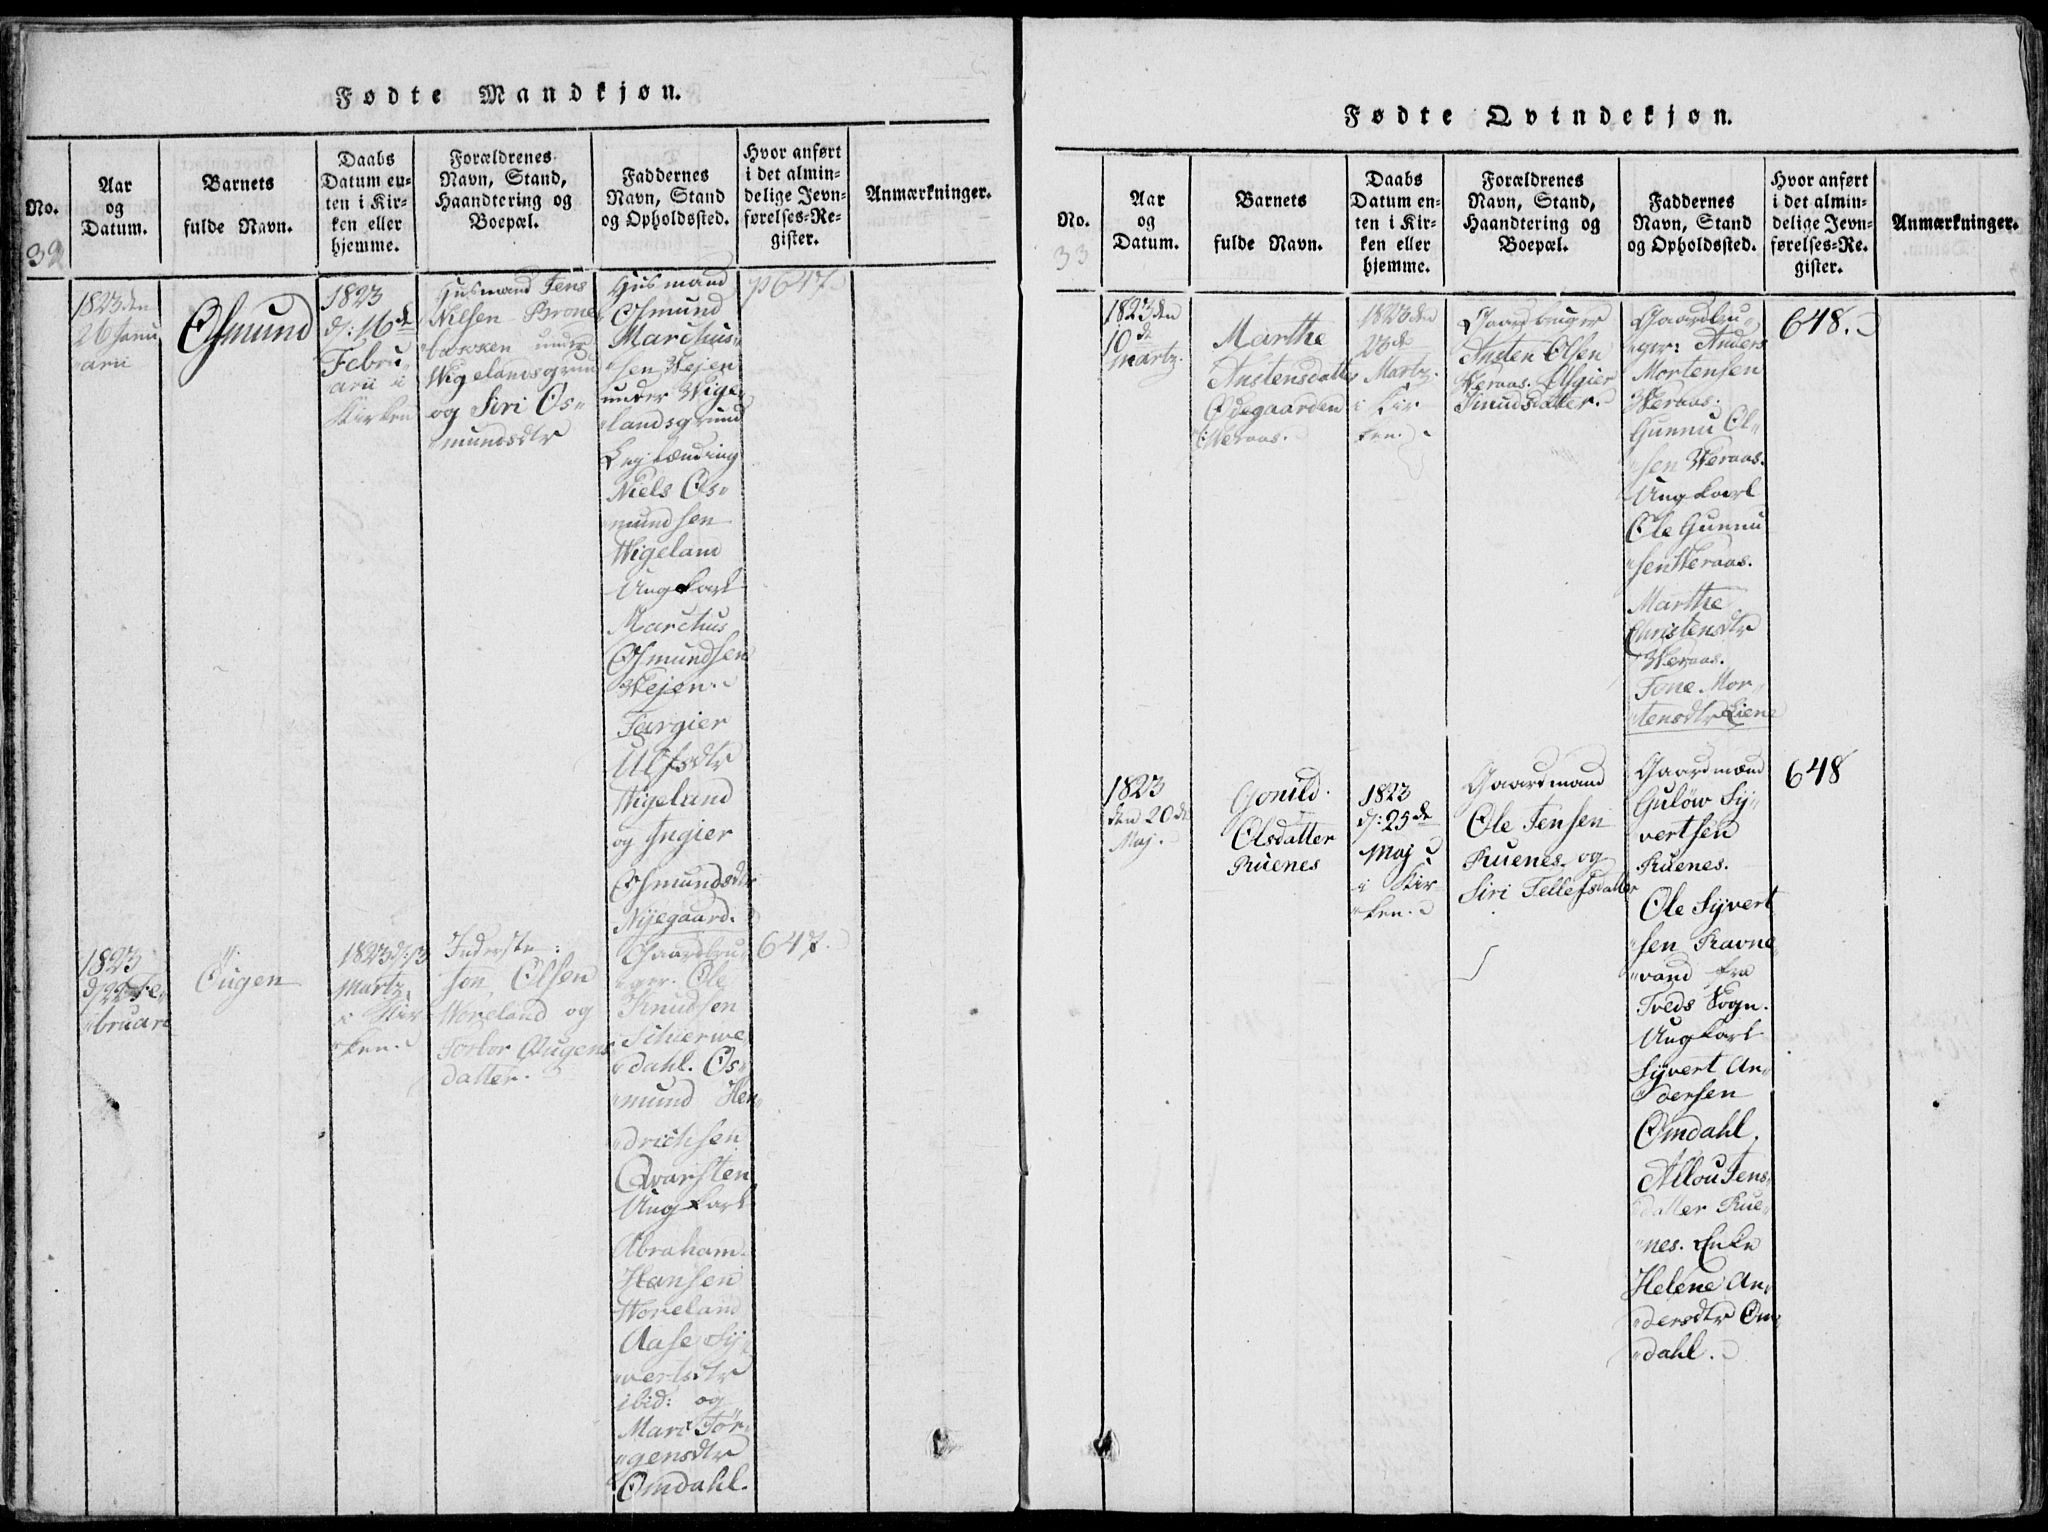 Fødte Mandkjøn.
No.
Aar
og
Datum.
Barnets
fulde Navn.
Daabs
Datum en-
ten i Kir-
ken eller
hjemme.
Forældrenes
Navn, Stand,
Haandtering og
Boepæl.
Faddernes
Navn, Stand
og Opholdssted.
Hvor anført
i det almin-
delige Jevn-
førelses-Re-
gister.
Anmærkninger.
32
1823 den
26 Janu
"arii
Osmund
1823
d: 16de
Febru
arii i
Kirken
Husmand Jens
Nilsen
under
Wigelandsgrund
og Siri Os-
"mundsdtr
Husmand
Osmund
Marchus-
"sen Vejen
under Wige-
"landsgrund
Niels Os-
"mundsen
Wigeland
Ungkarl
Marchus
Osmundsen
Vejen.
Torgier
Ulfsdtr
Wigeland
og Ingier
Osmundsdtr
Nijegaard.
p 647.
1823
d/22 Fe-
"bruari
Ougen
1823 d: 3
Martz
i Kir-
"ken.
Inderste
Jon Olsen
Woreland og
Torbor Ougens
datter.
Gaardbru
"ger. Ole
Knudsen
Schierwe
"dahl. Os-
"mund Hen-
"drichsen
Qvarsten
Ungkarl
Abraham
Hansen
Woreland
Aase Sy-
"vertsdtr
ibid: og
Mari Jör-
"gensdtr
Omdahl.
647.
Fødte Qvindekjøn.
No.
Aar
og
Datum.
Barnets
fulde Navn.
Daabs
Datum en-
ten i Kir-
ken eller
hjemme.
Forældrenes
Navn, Stand,
Haandtering og
Boepæl.
Faddernes
Navn, Stand
og Opholdssted.
Hvor anført
i det almin-
delige Jevn-
førelses-Re-
gister.
Anmærkninger.
33
1823 den
10de
Martz.
Marthe
Austensdatter
Ödegaarden
Weraas.
1823 den
23de
Martz.
i Kir
ken.
Gaardbruger
Austen Olsen
Weraas. Asgier
Knudsdatter.
Gaardbru
"ger: Anders
Mortensen
Weraas.
Gunnu Ol-
"sen Weraas.
Ungkarl
Ole Gunnu
"sen Weraas.
Marthe
Christensdtr
Weraas.
Tone Mor-
"tensdtr Liene
648.
1823
den 20de
Maj.
Gonild.
Olsdatter
Ruenes
1823
d: 25de
Maj
i Kir
"ken.
Gaardmand
Ole Jensen
Ruenes og
Siri Tellefsdatter
Gaardmænd
Gulöw Sy-
vertsen
Ruenes.
Ole Syvert
"sen Ravne
"vand fra
Tveds Sogn.
Ungkarl
Syvert An-
"dersen
Omdahl.
Allou Jens-
"datter Rue-
"nes. Enke
Helene An-
"dersdtr Om-
"dahl.
648